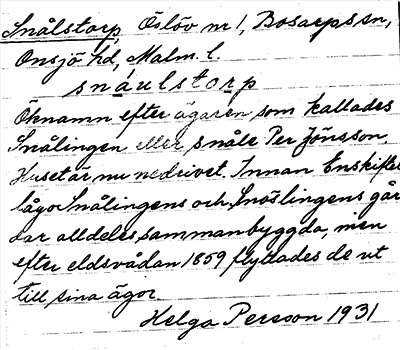 Snålstorp, Öslöv nr 1, Bosarps sn,
Onsjö hd, Malm. l.
snáulstorp
Öknamn efter ägaren som kallades
Snålingen eller snåle Per Jönsson.
Huset är nu nedrivet. Innan Enskifte
lågo Snålingens och Snöslingens går
dar alldeles sammanbyggda, men
efter eldsvådan 1859 flyttades de ut
till sina ägor.
Helga Persson 1931